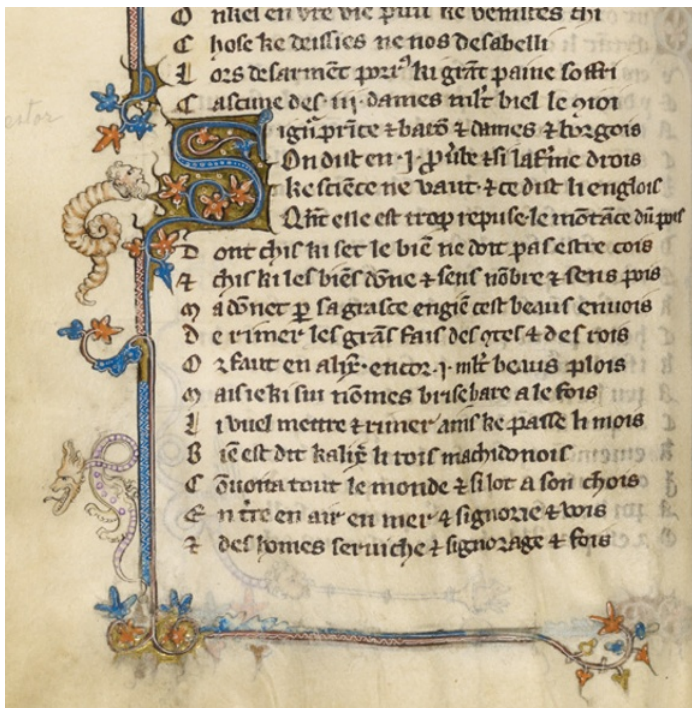 O nkel en vře vie puii ke venistes chi
C hose ke deissies ne nos desabelli
L ors desarmēt porr' ki grāt paine soffri
C ascune des · iii · dames ml't biel le
S igñ prīce ⁊ barō ⁊ dames ⁊ borgois
On dist en · j · ⁊ si la fine drois
ke sciēce ne vaut · ⁊ ce dist li englois
Qñt elle est trop repuse · le mōtāce dũ pois
D ont chis ki set le biē ne doit pas estre cois
A chis ki les biēs dōne ⁊ sens nōbre ⁊ sens pois
M a dōnet ꝑ sa grasce engiē cest beaus enuois
D e rimer les grās fais des ꝯtes ⁊ des rois
O r faut en alix̄ · encor · j · ml't beaus plois
M ais ie ki sui nōmes brisebare a le fois
L i vuel mettre ⁊ rimer ains ke passe li mois
B iē est dit kalix̄ li rois machidonois
C ōuoita tout le monde ⁊ si lot a son chois
E n t're en air en mer ⁊ signorie ⁊ vois
⁊ des homes seruiche ⁊ signorage ⁊ fois